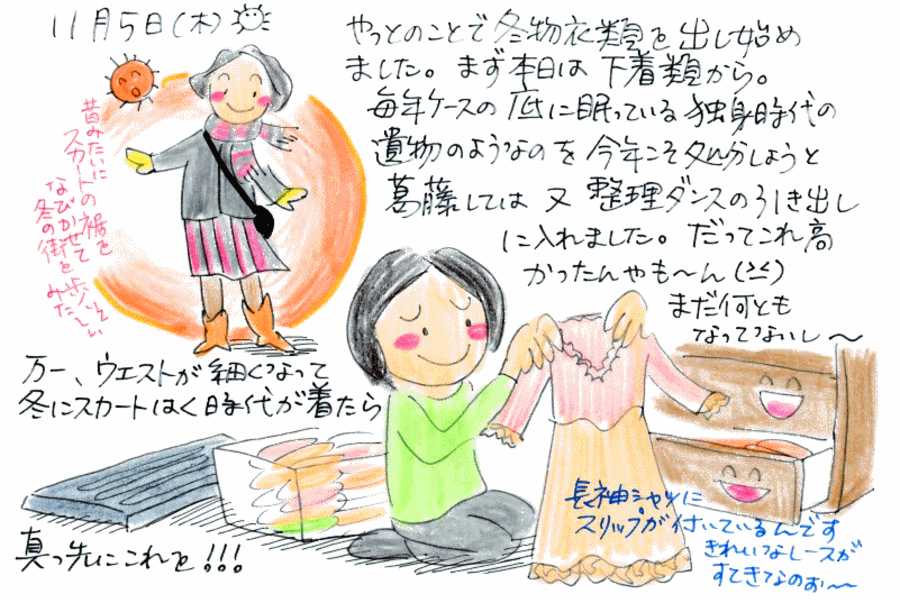 11月5日(木)
やっとのことで冬物衣類を出し始め
ました。まず本日は下着類から。
毎年ケースの底に眠っている独身時代の
遺物のようなのを今年こそ処分しようと
葛藤しては又整理ダンスの引き出し
に入れました。だってこれ高
かったんやも〜ん(><)
まだ何とも
なってないし〜
昔みたいに
スカートの裾を
なびかせて
冬の街を
歩いて
みたい
万一、ウエストが細くなって
冬にスカートはく時代が着たら
真っ先にこれを!!!
長袖シャツに
スリップが付いているんです
きれいなレースが
すてきなのぉ〜